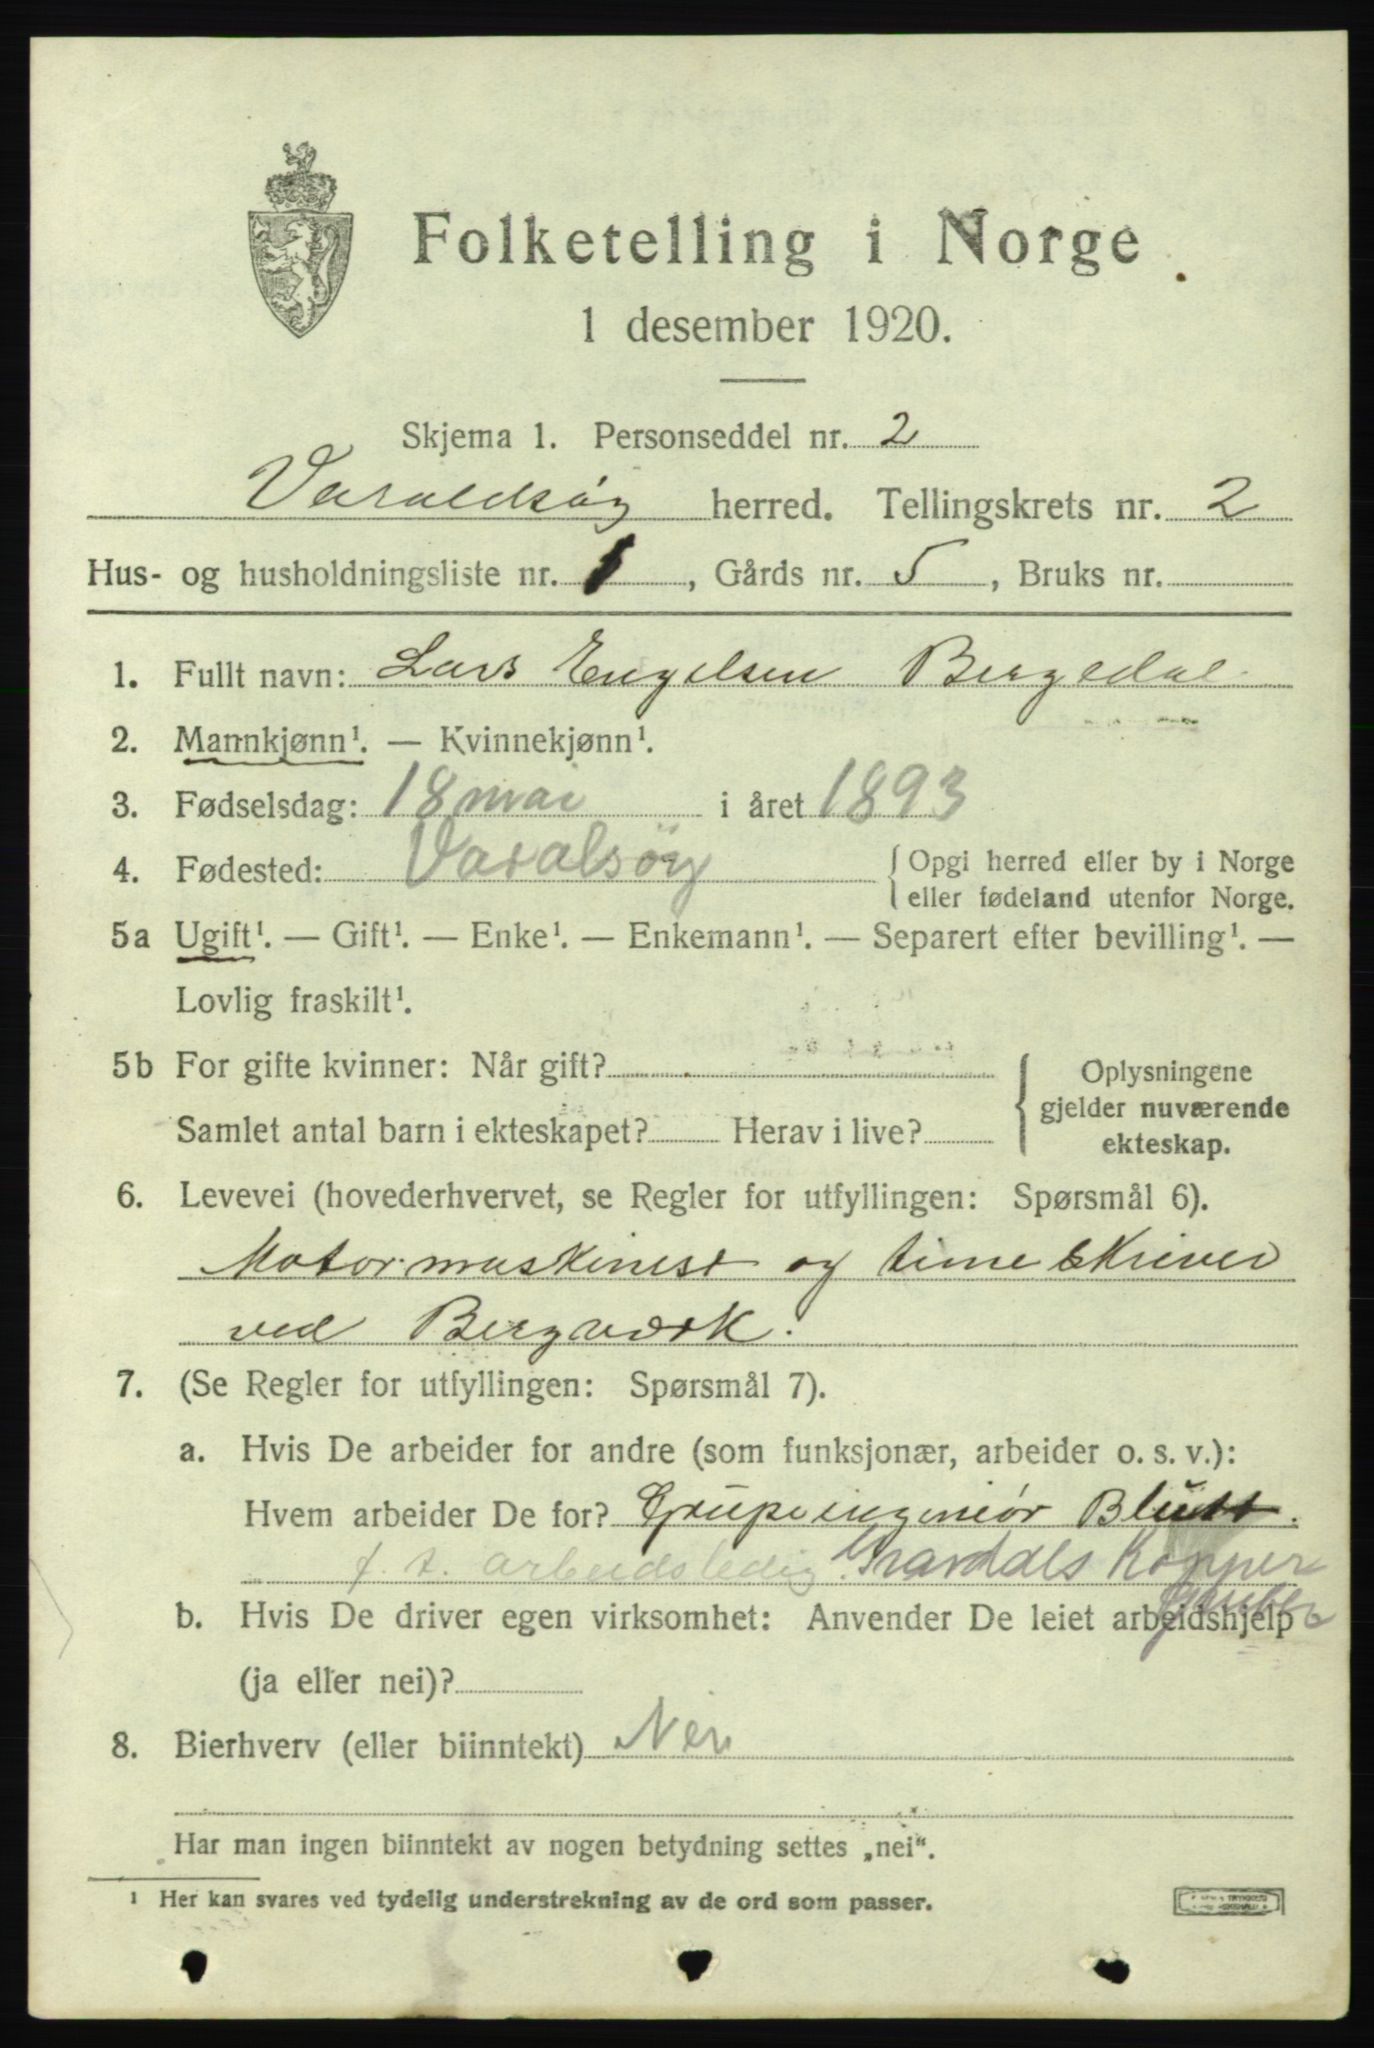 Folketelling i Norge
1 desember 1920.
Skjema 1. Personseddel nr. 2
Varaldsøy herred. Tellingskrets nr. 2
Hus- og husholdningsliste nr. 1, Gårds nr. 5, Bruks nr.
1. Fullt navn: Lars Engelsen Bergedal
2. Mannkjønn¹. — Kvinnekjønn¹.
3. Fødselsdag: 18 mai i året 1893
4. Fødested: Varalsöy { Opgi herred eller by i Norge
eller fødeland utenfor Norge.
5a Ugift¹. — Gift¹. — Enke¹. — Enkemann¹. — Separert efter bevilling¹. —
Lovlig fraskilt¹.
5b For gifte kvinner: Når gift? { Oplysningene
gjelder nuværende
Samlet antal barn i ekteskapet? Herav i live?
ekteskap.
6. Levevei (hovederhvervet, se Regler for utfyllingen: Spørsmål 6).
Motormaskinist og timeskriver
ved Bergværk.
7. (Se Regler for utfyllingen: Spørsmål 7).
a. Hvis De arbeider for andre (som funksjonær, arbeider o. s. v.):
Hvem arbeider De for? Grupeingeniør
f. t. arbeidsledig. Gravdals Kopper
Gruber
b. Hvis De driver egen virksomhet: Anvender De leiet arbeidshjelp
(ja eller nei)?
8. Bierhverv (eller biinntekt) Nei
Har man ingen biinntekt av nogen betydning settes „nei“.
¹ Her kan svares ved tydelig understrekning av de ord som passer.